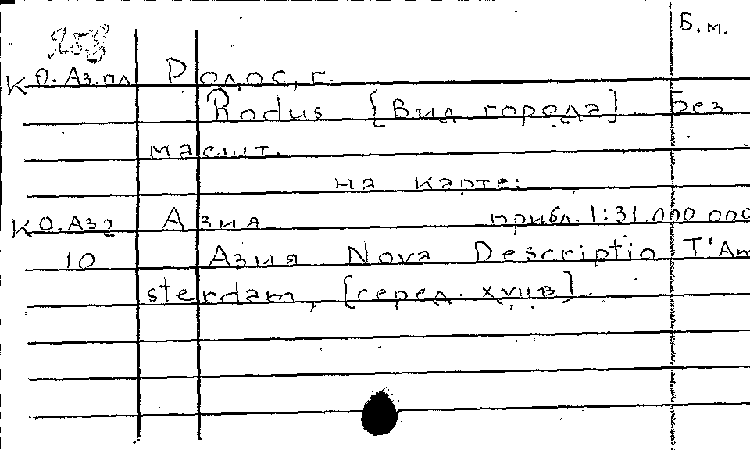 Б.м.
253
К О. Аз. пл Родос, г.
Rodus [Вид города] Без
масшт.
на карте:
К О. Аз 2 Азия прибл. 1:31.000 000
10 Азия Nova Descriptio T'Am
sterdam, [серед. XVIIв]